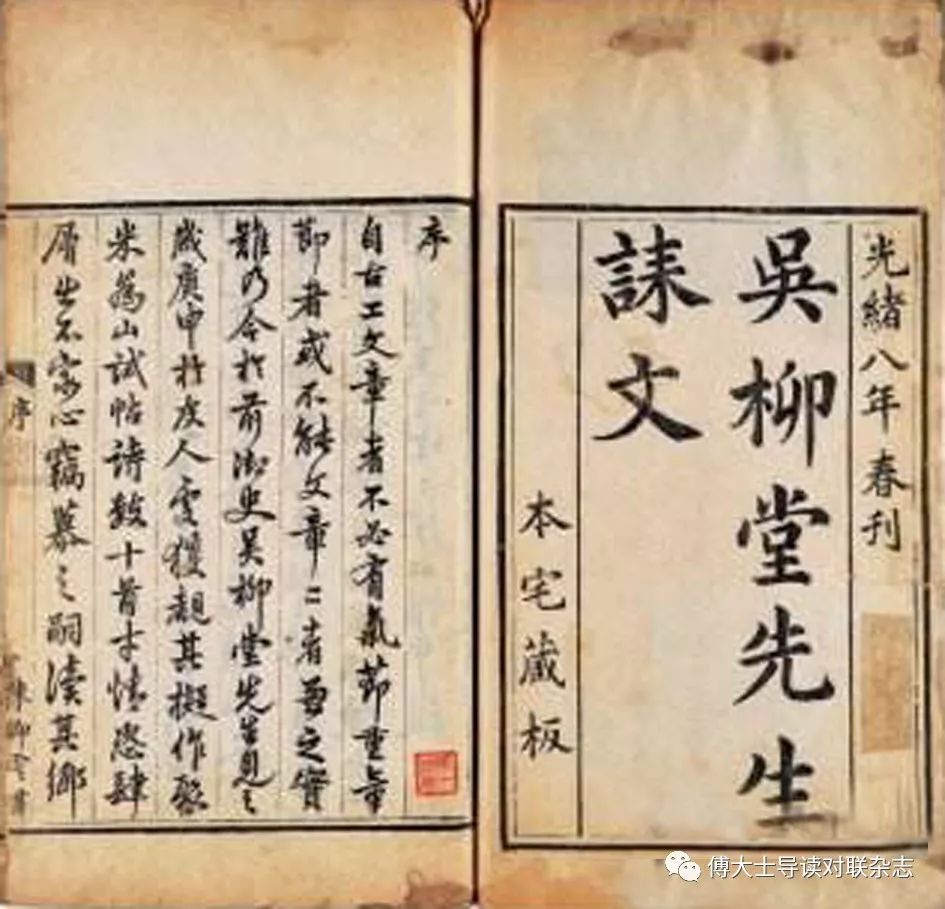 光緒八年春刊
吳柳堂先生
誄文
本宅藏板
序
自古工文章者不必有氣節重氣
節者或不能文章二者兼之實
難乃今於前御史吳柳堂先生見之
歲庚申於友人處獲覩其擬作聚
米為山試帖詩數十首才情恣肆
層出不窮心竊慕之嗣讀其鄉
序
傅大士导读对联杂志